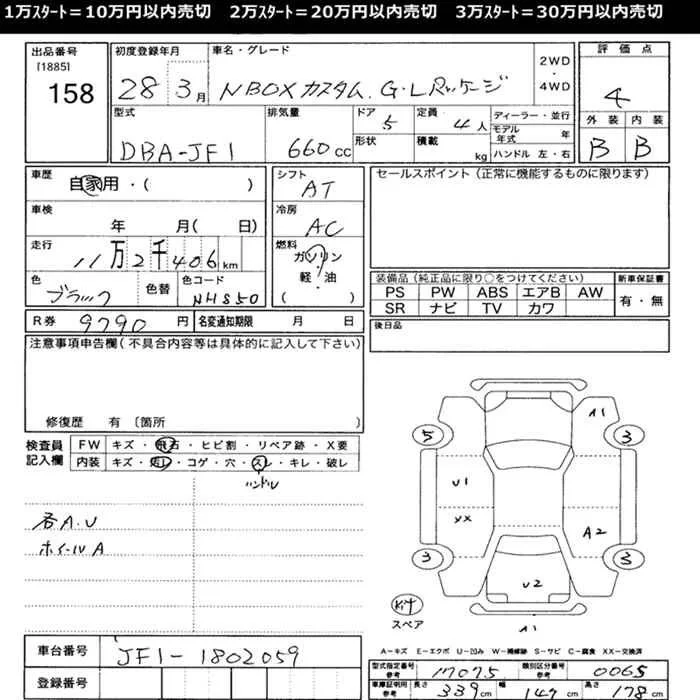 1万ｽﾀｰﾄ＝10万円以内売切　2万ｽﾀｰﾄ＝20万円以内売切　3万ｽﾀｰﾄ＝30万円以内売切
出品番号 初度登録年月 車名・グレード 評価点
[1885] 2WD
158 28 3月 N BOXカスタム G・Lパッケージ ・ 4
4WD
型式 排気量 ドア 5 定員 4人 ディーラー・並行 外装 内装
モデル年式 年
DBA-JF1 660cc 形状 積載 kg ハンドル 左・右 B B
車歴 自家用・( ) シフト AT セールスポイント(正常に機能するものに限ります)
車検 年 月( 日) 冷房 AC
走行 11万2千406km 燃料 ガソリン・軽・油 ( )
色 ブラック 色替 色コード NH850
装備品(純正品に限り○をつけてください) 新車保証書
PS PW ABS エアB AW 有・無
SR ナビ TV カワ
R券 9790円 名変通知期限 月 日 後日品
注意事項申告欄(不具合内容等は具体的に記入して下さい)
修復歴 有 〔箇所
検査員記入欄 FW キズ・飛石・ヒビ割・リペア跡・X要
内装 キズ・汚レ・コゲ・穴・スレ・キレ・破レ
ハンドル
各A.U
ホイールA
A1
5 3
U1
XX A2
3 3
U2
スペア
A1
A－キズ E－エクボ U－凹み W－補修跡 S－サビ C－腐食 XX－交換済
車台番号 JF1-1802059
登録番号
型式指定番号 参考 17075 類別区分番号 参考 0065
車庫証明用 参考 長さ 339cm 幅 147cm 高さ 178cm